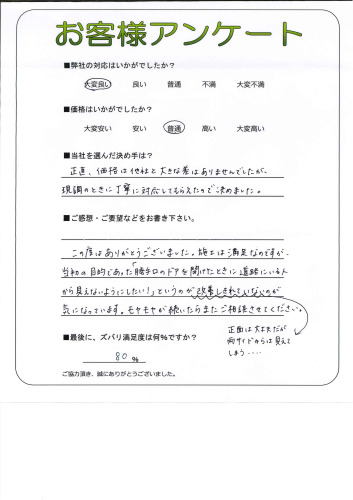 お客様アンケート
■弊社の対応はいかがでしたか？
大変良い 良い 普通 不満 大変不満
■価格はいかがでしたか？
大変安い 安い 普通 高い 大変高い
■当社を選んだ決め手は？
正直、価格は他社と大きな差はありませんでしたが、
現調のときに丁寧に対応してもらえたので決めました。
■ご感想・ご要望などをお書き下さい。
この度はありがとうございました。施工は満足なのですが、
当初の目的であった「勝手口のドアを開けたときに道路にいる人
から見えないようにしたい！」というのが改善しきれていないのが
気になっています。モヤモヤが続いたらまたご相談させてください。
正面は大丈夫だが
両サイドからは見えて
しまう・・・・
■最後に、ズバリ満足度は何%ですか？
80 %
ご協力頂き、誠にありがとうございました。